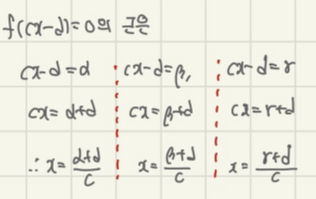 f(cx-d)=0의 근은
cx-d=α cx-d=β, cx-d=r
cx=α+d cx=β+d cx=r+d
∴ x=α+d/c x=β+d/c x=r+d/c